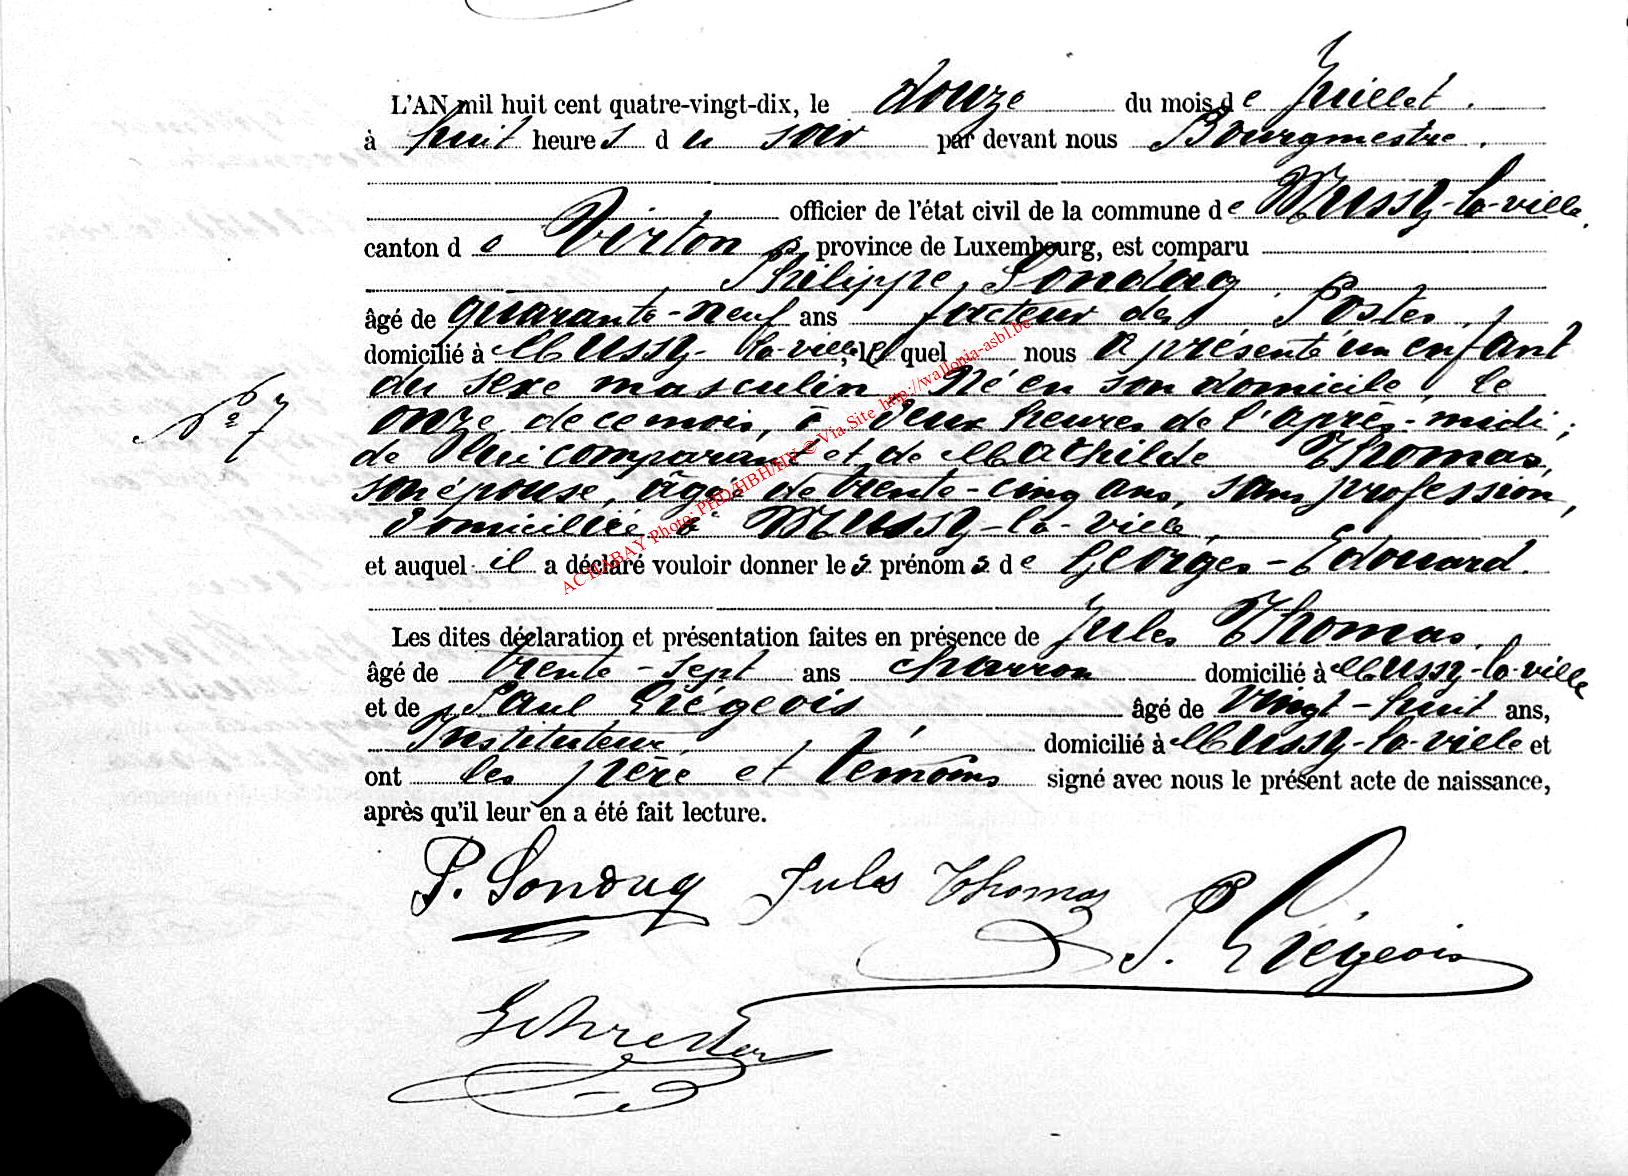 L'AN mil huit cent quatre-vingt-dix, le douze du mois de Juillet.
à huit heures du soir par devant nous Bourgmestre.
officier de l'état civil de la commune de Mussy-la-ville,
canton de Virton, province de Luxembourg, est comparu
Philippe Sondag,
âgé de quarante-neuf ans facteur des Postes,
domicilié à Mussy-la-ville, lequel nous a présenté un enfant
du sexe masculin Né en son domicile, le
N° 7
onze de ce mois, à deux heures de l'après-midi;
de lui comparant et de Mathilde Thomas,
son épouse, âgée de trente-cinq ans, sans profession,
domiciliée à Mussy-la-ville,
et auquel il a déclaré vouloir donner les prénoms de Georges-Edouard.
Les dites déclaration et présentation faites en présence de Jules Thomas,
âgé de trente-sept ans charron domicilié à Mussy-la-ville
et de Paul Liégeois âgé de vingt-huit ans,
Instituteur, domicilié à Mussy-la-ville et
ont les père et témoins signé avec nous le présent acte de naissance,
après qu'il leur en a été fait lecture.
P. Sondag Jules Thomas
P. Liégeois
ACHABAY Photo: PHD/HBH/HV © Via Site http://wallonia-asbl.be